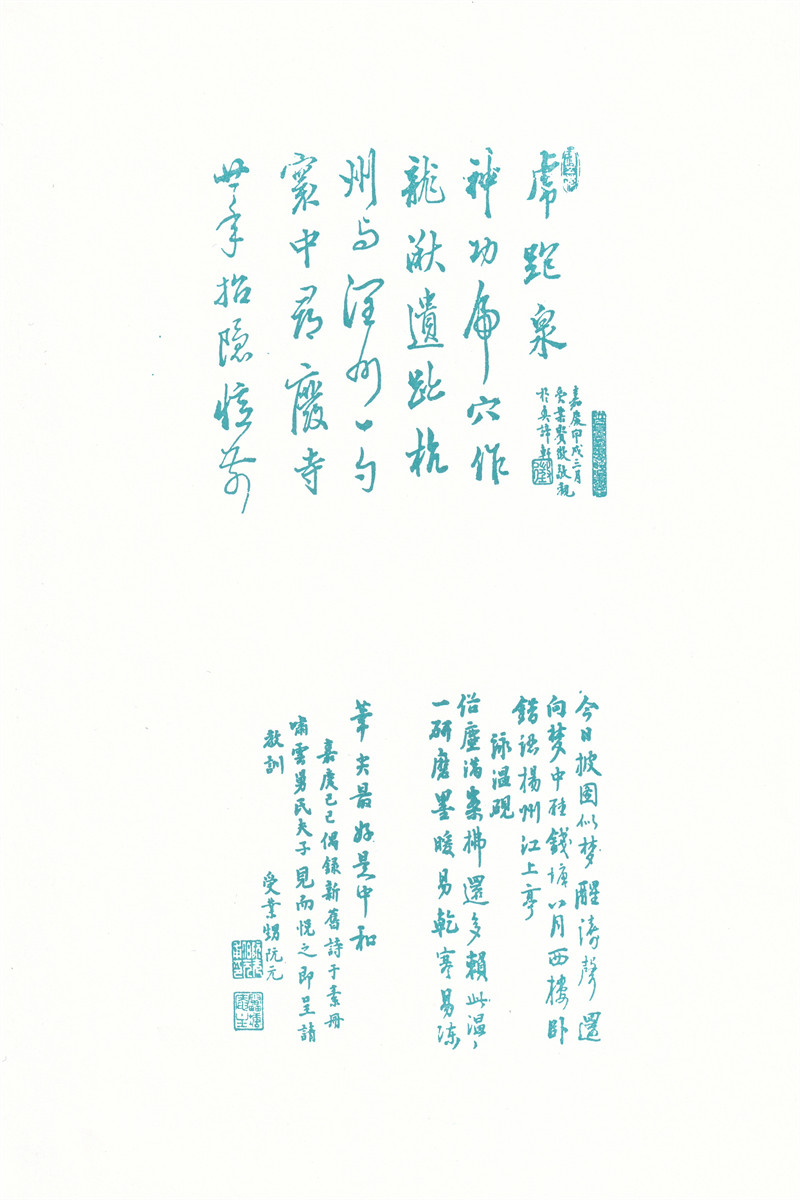 虎跑泉
神功虎穴作
龍湫遺趾杭
州与潤州一勺
寰中尋廢寺
世年招隱憶前
嘉慶甲戌三月
受業費
於
今日披圖似夢醒濤聲還
向夢中聽錢塘八月西樓卧
錯認楊州江上亭
詠温硯
俗塵滿案拂還多賴此温〻
一研磨墨暖易乾寒易凍
筆尖最好是中和
嘉慶己巳偶錄新舊詩于素冊
嘯雲舅氏夫子見而悅之即呈請
教訓
受業甥阮元